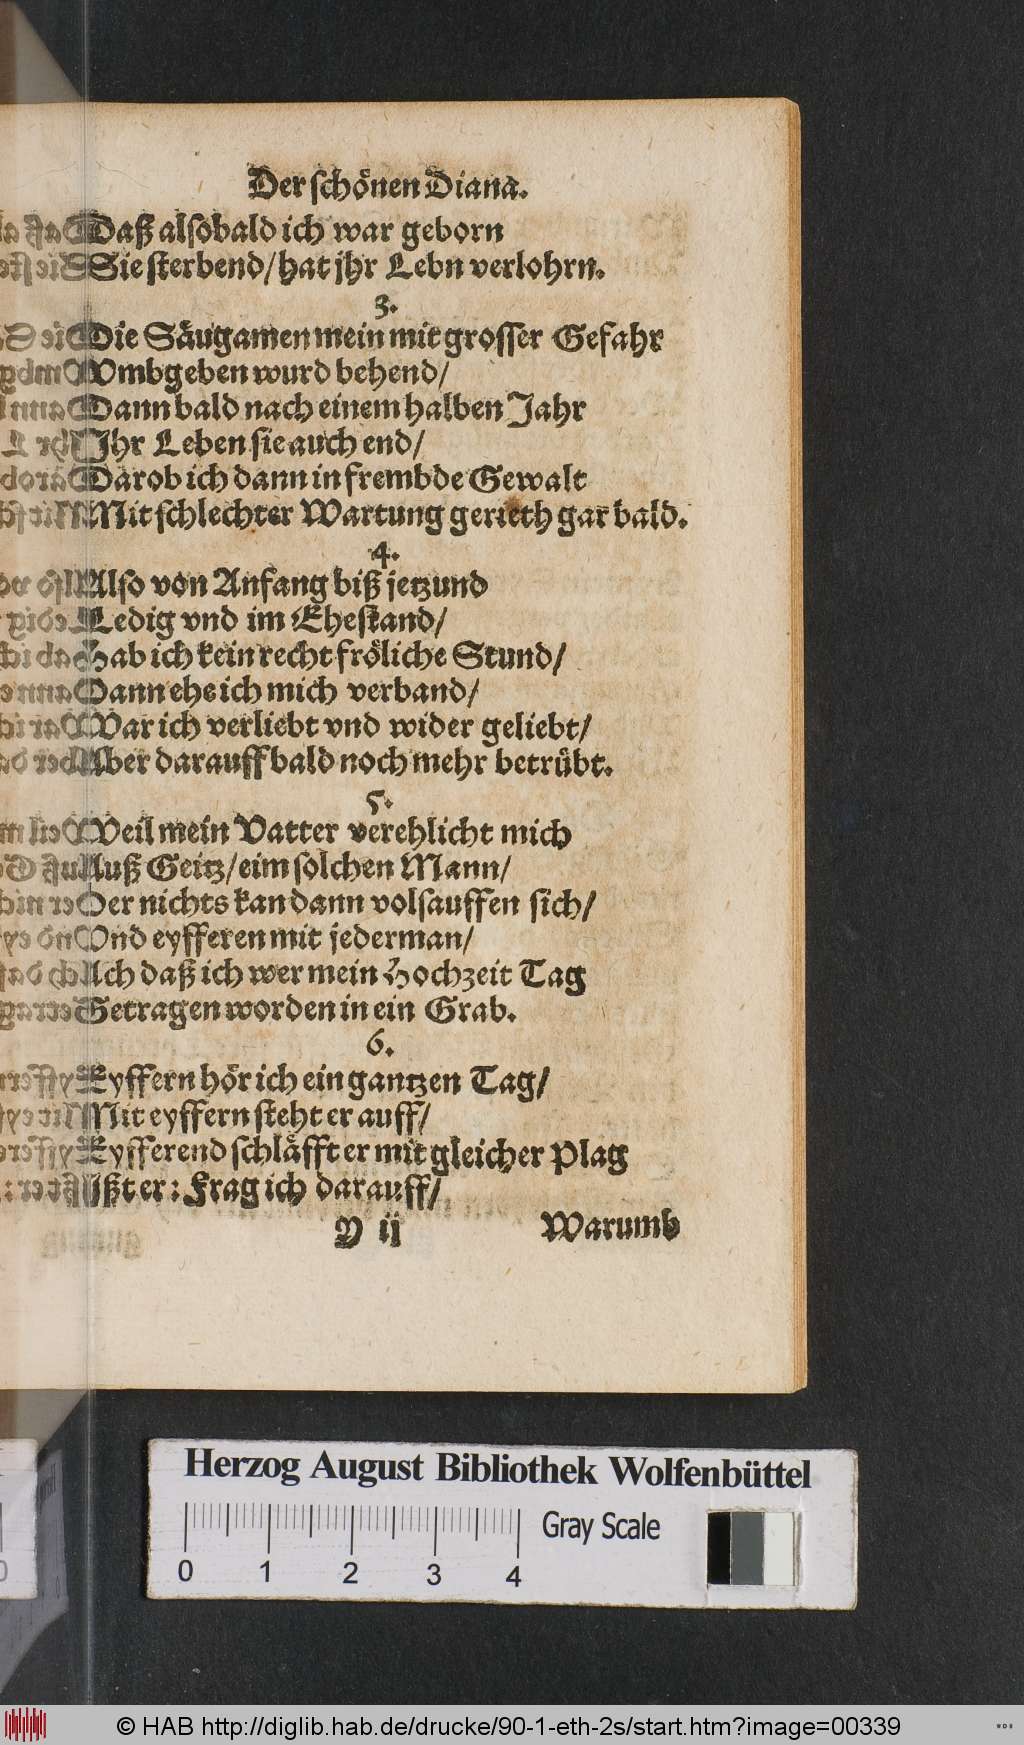 Der schönen Diana.
Daß alsobald ich war geborn
Sie sterbend/ hat jhr Lebn verlohrn.
3.
Die Säugamen mein mit grosser Gefahr
Vmbgeben wurd behend/
Dann bald nach einem halben Jahr
Ihr Leben sie auch end/
Darob ich dann in frembde Gewalt
Mit schlechter Wartung gerieth gar bald.
4.
Also von Anfang biß jetzund
Ledig vnd im Ehestand/
Hab ich kein recht fröliche Stund/
Dann ehe ich mich verband/
War ich verliebt vnd wider geliebt/
Aber darauff bald noch mehr betrübt.
5.
Weil mein Vatter verehlicht mich
Auß Geitz/ eim solchen Mann/
Der nichts kan dann volsauffen sich/
Vnd eyfferen mit jederman/
Ach daß ich wer mein Hochzeit Tag
Getragen worden in ein Grab.
6.
Eyffern hör ich ein gantzen Tag/
Mit eyffern steht er auff/
Eyfferend schläfft er mit gleicher Plag
Ißt er: Frag ich darauff/
Y ij Warumb
Herzog August Bibliothek Wolfenbüttel
Gray Scale
0 1 2 3 4
© HAB http://diglib.hab.de/drucke/90-1-eth-2s/start.htm?image=00339